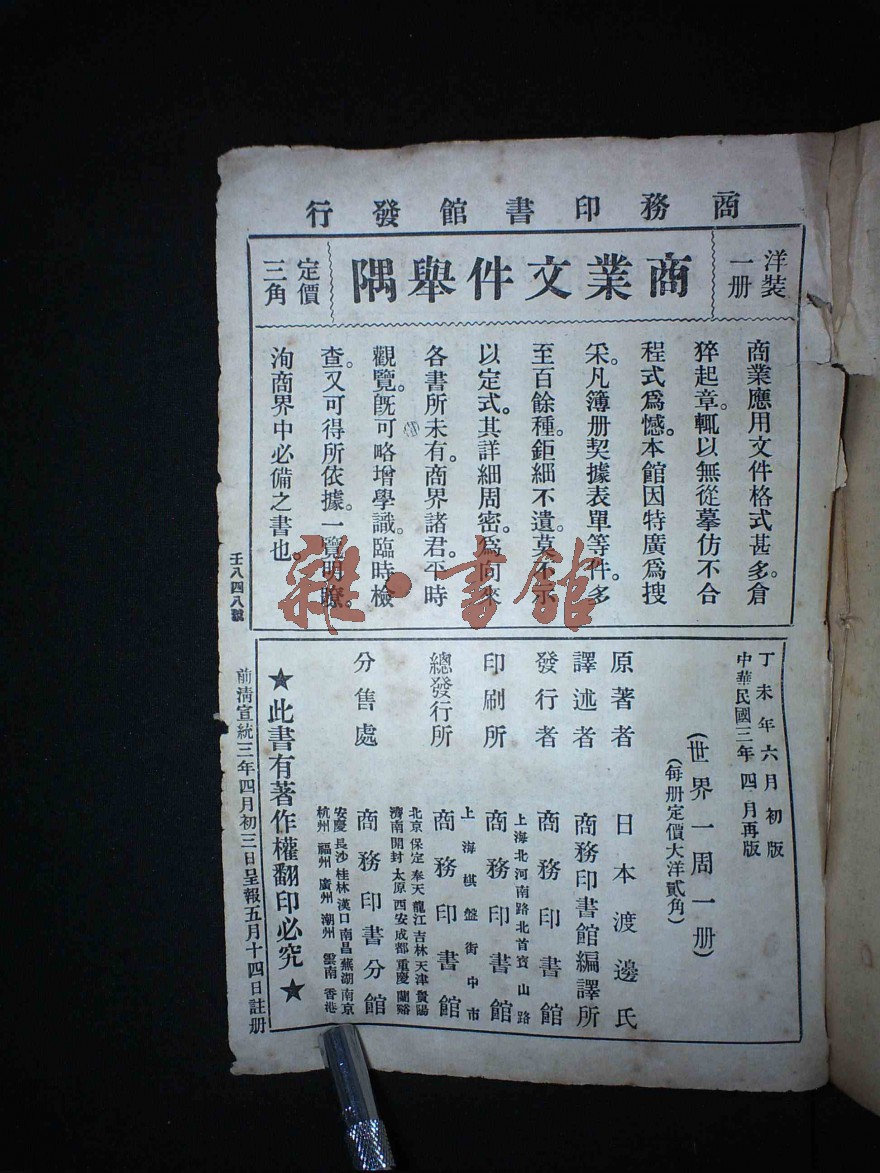 商務印書館發行
洋裝一册
商業文件舉隅
定價三角
商業應用文件格式甚多。倉
猝起章。輒以無從摹仿不合
程式爲憾。本館因特廣爲搜
采。凡簿册契據表單等件。多
至百餘種。鉅細不遺。莫不示
以定式。其詳細周密。爲向來
各書所未有。商界諸君。平時
觀覽。旣可略增學識。臨時檢
查。又可得所依據。一覽明瞭。
洵商界中必備之書也。
壬八四八號
雜·書館
丁未年六月初版
中華民國三年四月再版
(世界一周一册)
(每册定價大洋貳角)
原著者 日本渡邊氏
譯述者 商務印書館編譯所
發行者 商務印書館
上海北河南路北首寶山路
印刷所 商務印書館
上海棋盤街中市
總發行所 商務印書館
北京 保定 奉天 龍江 吉林 天津 貴陽
濟南 開封 太原 西安 成都 重慶 蘭谿
分售處 商務印書分館
安慶 長沙 桂林 漢口 南昌 蕪湖 南京
杭州 福州 廣州 潮州 雲南 香港
★此書有著作權翻印必究★
前清宣統三年四月初三日呈報五月十四日註册